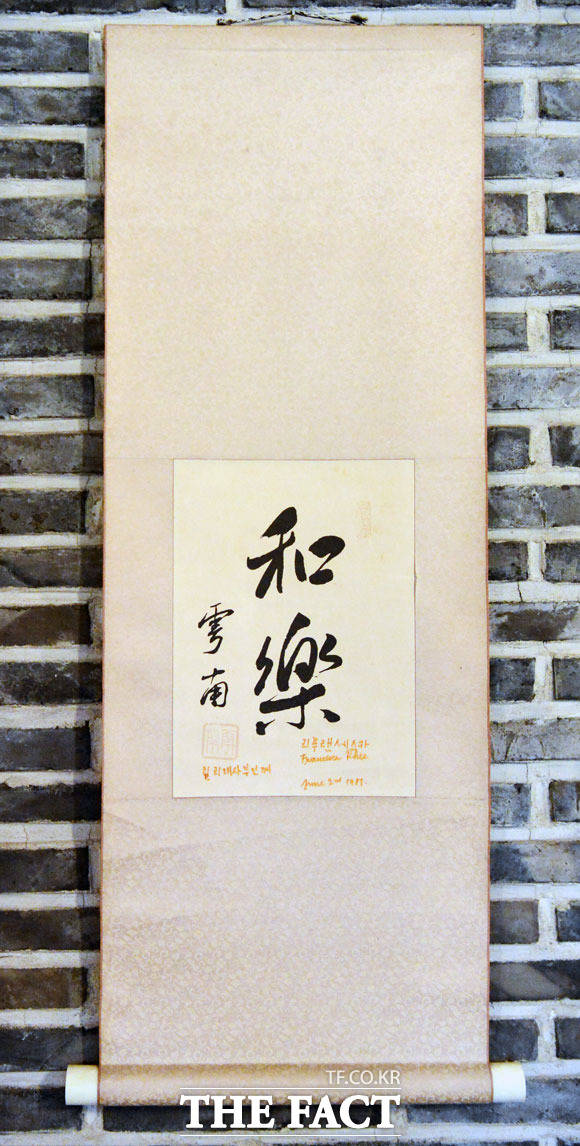 和樂
雩南
릴리대사부인께
리푸랜세스카
Francesca Rhee
June 2nd 1987.
TF.CO.KR
THE FACT